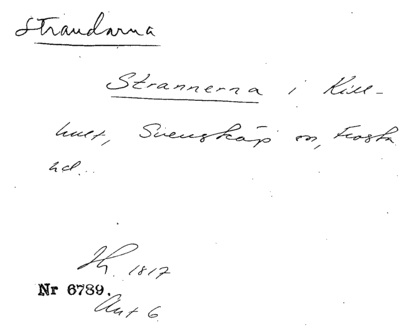 Strandarna
Strannerna i Kill-
hult, Svensköp sn, Frosta
hd.
Jh. 1817
Nr 6789.
Ant 6